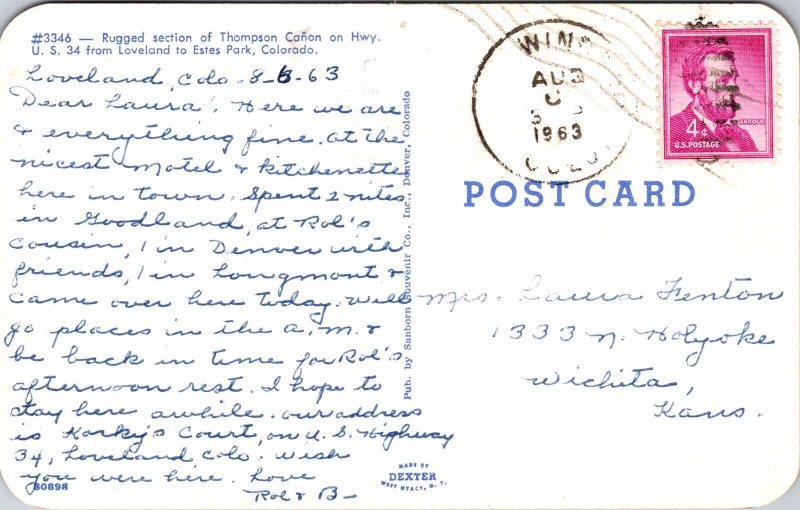 #3346 — Rugged section of Thompson Cañon on Hwy.
U. S. 34 from Loveland to Estes Park, Colorado.
Loveland, Colo. 8-6-63
Dear Laura: Here we are
& everything fine. at the
nicest motel & kitchenette
here in town. Spent 2 nites
in Goodland, at Rol's
cousin, 1 in Denver with
friends, 1 in Longmont &
came over here today. Will
go places in the a.m. &
be back in time for Rol's
afternoon rest. I hope to
stay here awhile. our address
is Korky's Court, on U.S. Highway
34, Loveland Colo. Wish
you were here. Love
Rol & B-
B0898
Pub. by Sanborn Souvenir Co., Inc., Denver, Colorado
MADE BY
DEXTER
WEST NYACK, N. Y.
AUG
1963
COLO.
LINCOLN
4¢
U.S. POSTAGE
POST CARD
Mrs. Laura Fenton
1333 N. Holyoke
Wichita,
Kans.